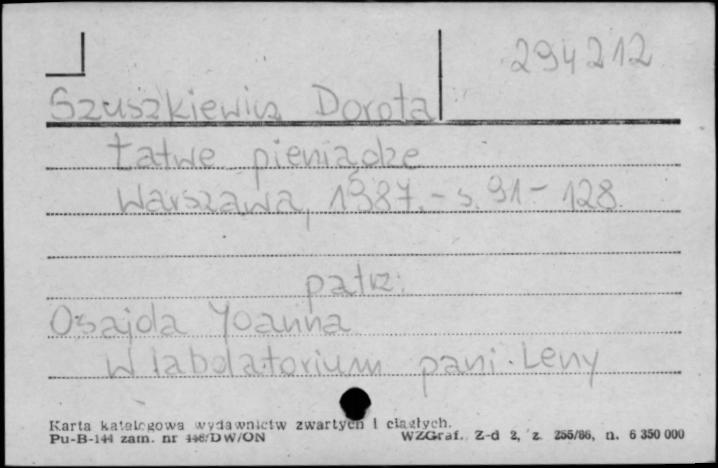 294212
Szuszkiewicz Dorota
Łatwe pieniądze
Warszawa, 1987. - s. 91 - 128.
patrz:
Osajda Joanna
W labolatorium pani Leny
Karta katalogowa wydawnictw zwartych i ciągłych.
Pu-B-144 zam. nr 446/DW/ON WZGraf. Z-d 2, z. 255/86, n. 6 350 000